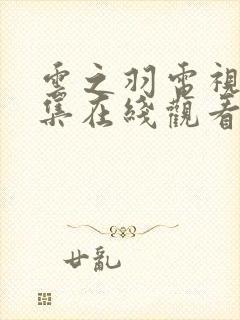 雲之羽電視
集在綫觀看
廿亂